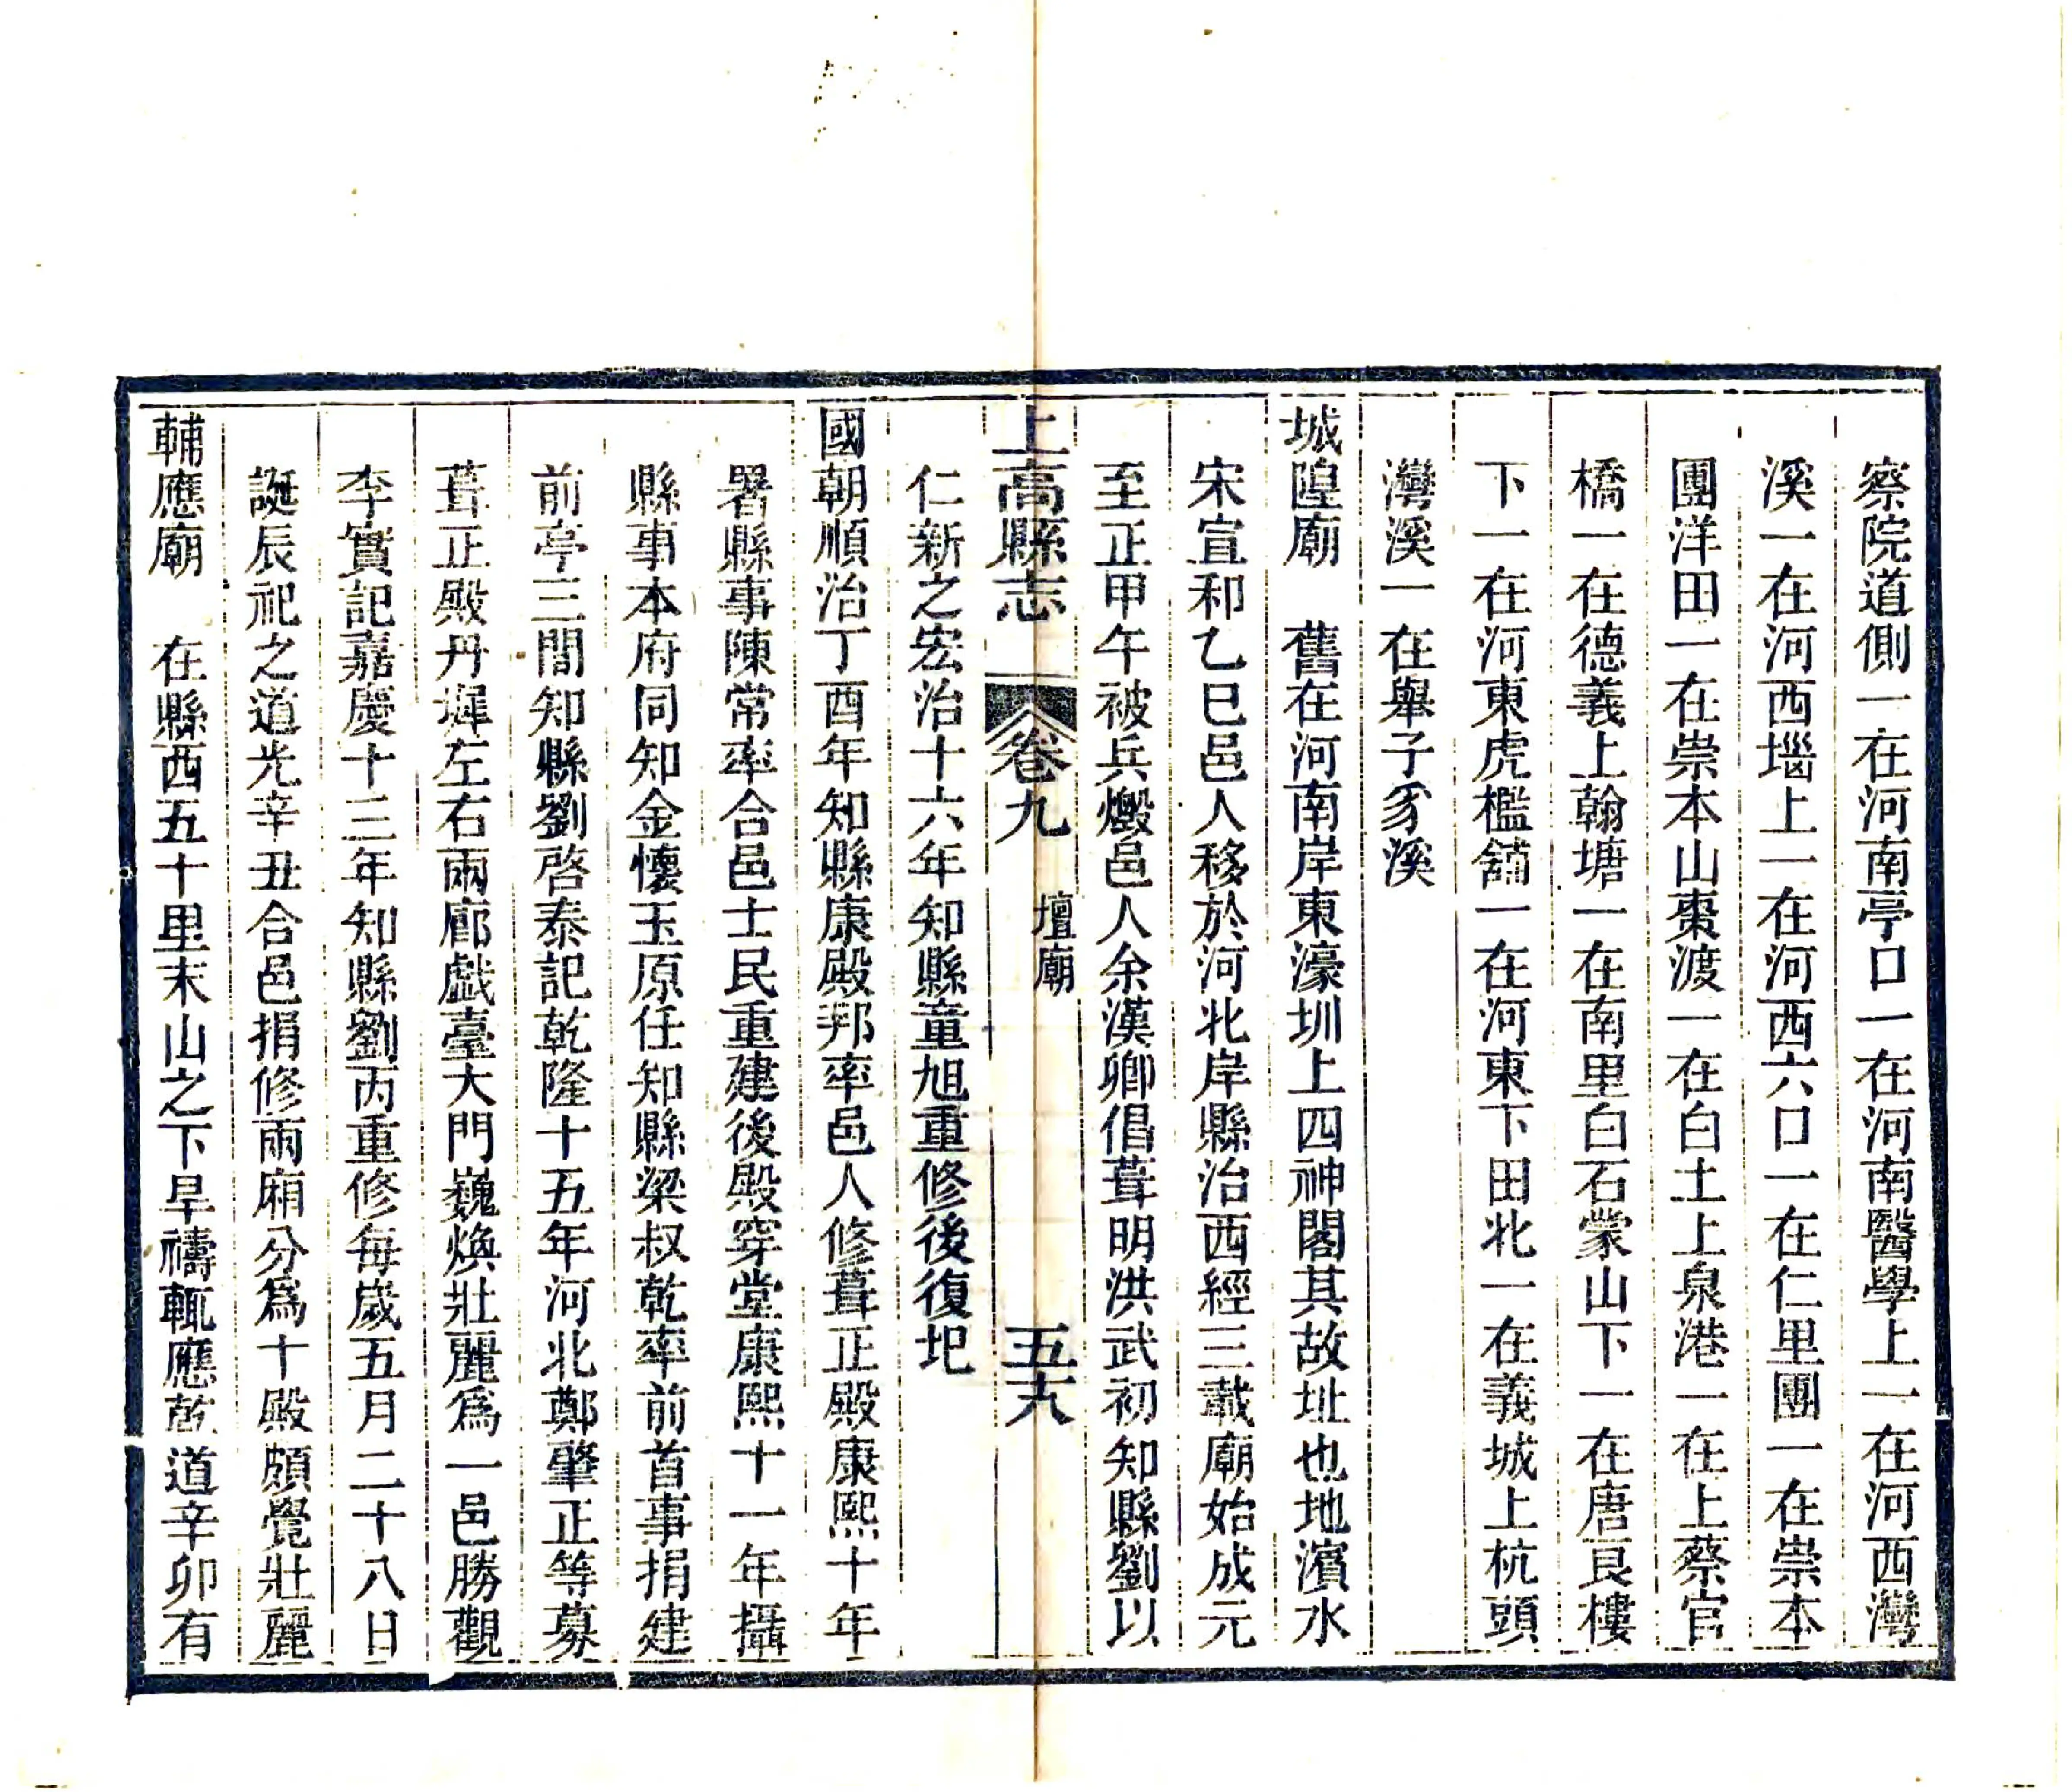 察院道側一在河南亭口一在河南醫學上一在河西灣
溪一在河西堖上一在河西六口一在仁里團一在崇本
團洋田一在崇本山棗渡一在白土上泉港一在上蔡官
橋一在德義上翰塘一在南里白石蒙山下一在唐艮樓
下一在河東虎檻舖一在河東下田北一在義城上杭頭
灣溪一在舉子豸溪
城隍廟　舊在河南岸東濠圳上四神閣其故址也地濱水
宋宣和乙巳邑人移於河北岸縣治西經三載廟始成元
至正甲午被兵燬邑人余漢卿倡葺明洪武初知縣劉以
上高縣志　卷九　壇廟　五六
仁新之宏治十六年知縣童旭重修後復圯
國朝順治丁酉年知縣康殿邦率邑人修葺正殿康熙十年
署縣事陳常率合邑士民重建後殿穿堂康熙十一年攝
縣事本府同知金懷玉原任知縣梁叔乾率前首事捐建
前亭三間知縣劉啓泰記乾隆十五年河北鄭肇正等募
葺正殿丹墀左右兩廊戲臺大門巍煥壯麗爲一邑勝觀
李實記嘉慶十三年知縣劉丙重修每歲五月二十八日
誕辰祀之道光辛丑合邑捐修兩廂分爲十殿頗覺壯麗
輔應廟　在縣西五十里末山之下旱禱輒應乾道辛卯有